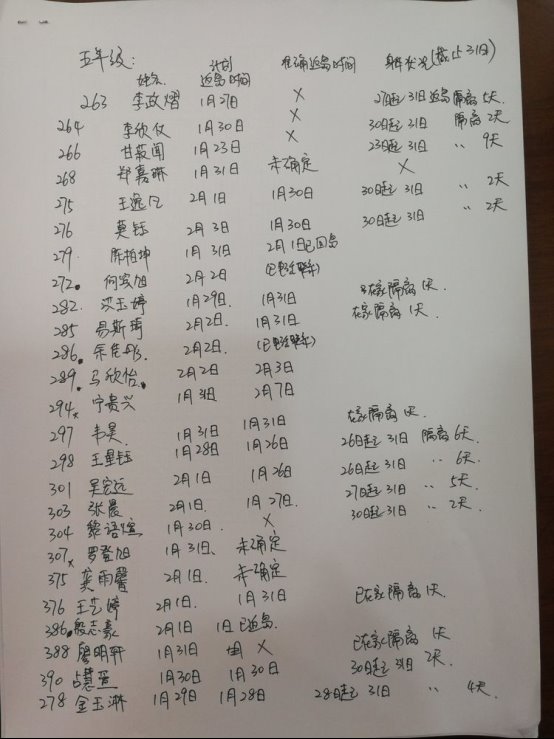 五年级:
姓名 计划返岛时间 准确返岛时间 身体状况(截止31日)
263 李政熠 1月27日 × 27日起31日返岛隔离5天.
264 李欣仪 1月30日 × 30日起31日 隔离2天
266 甘筱闻 1月23日 × 23日起31日 〃 9天
268 郑嘉琳 1月31日 未确定 ×
275 王逸凡 2月1日 1月30日 30日起31日 〃 2天
276 莫钰 2月3日 1月30日 30日起31日 〃 2天
279. 陈柏坤 1月31日 2月1日已回岛
272. 何宾旭 2月2日
282. 洪玉婷 1月29日. 1月31日 已在家隔离1天.
285 易斯琦 2月2日. 1月31日 在家隔离1天.
286. 2月2日.
289. 马欣怡. 2月2日 2月3日
294× 宁贵兴 1月31日 2月7日
297 韦昊. 1月31日 1月31日 在家隔离1天.
298 王星钰 1月28日 1月26日 26日起31日 隔离6天.
301 吴宏远 2月1日 1月26日 26日起31日 〃 6天.
303 张晨 2月1日. 1月27日. 27日起31日 〃 5天
304 黎语煊 1月30日. × 30日起31日 〃 2天.
307.× 罗登旭 1月31日. 未确定
375 龚雨馨 2月1日. 未确定
376 王艺婷 2月1日. 1月31日 已在家隔离1天.
386. 殷志豪 2月1日 1日已返岛.
388 廖明轩 1月31日 × 已在家隔离1天
390 占慧萱 1月30日 1月30日 30日起31日 2天.
278 金玉淋 1月29日 1月28日 28日起31日 〃 4天.